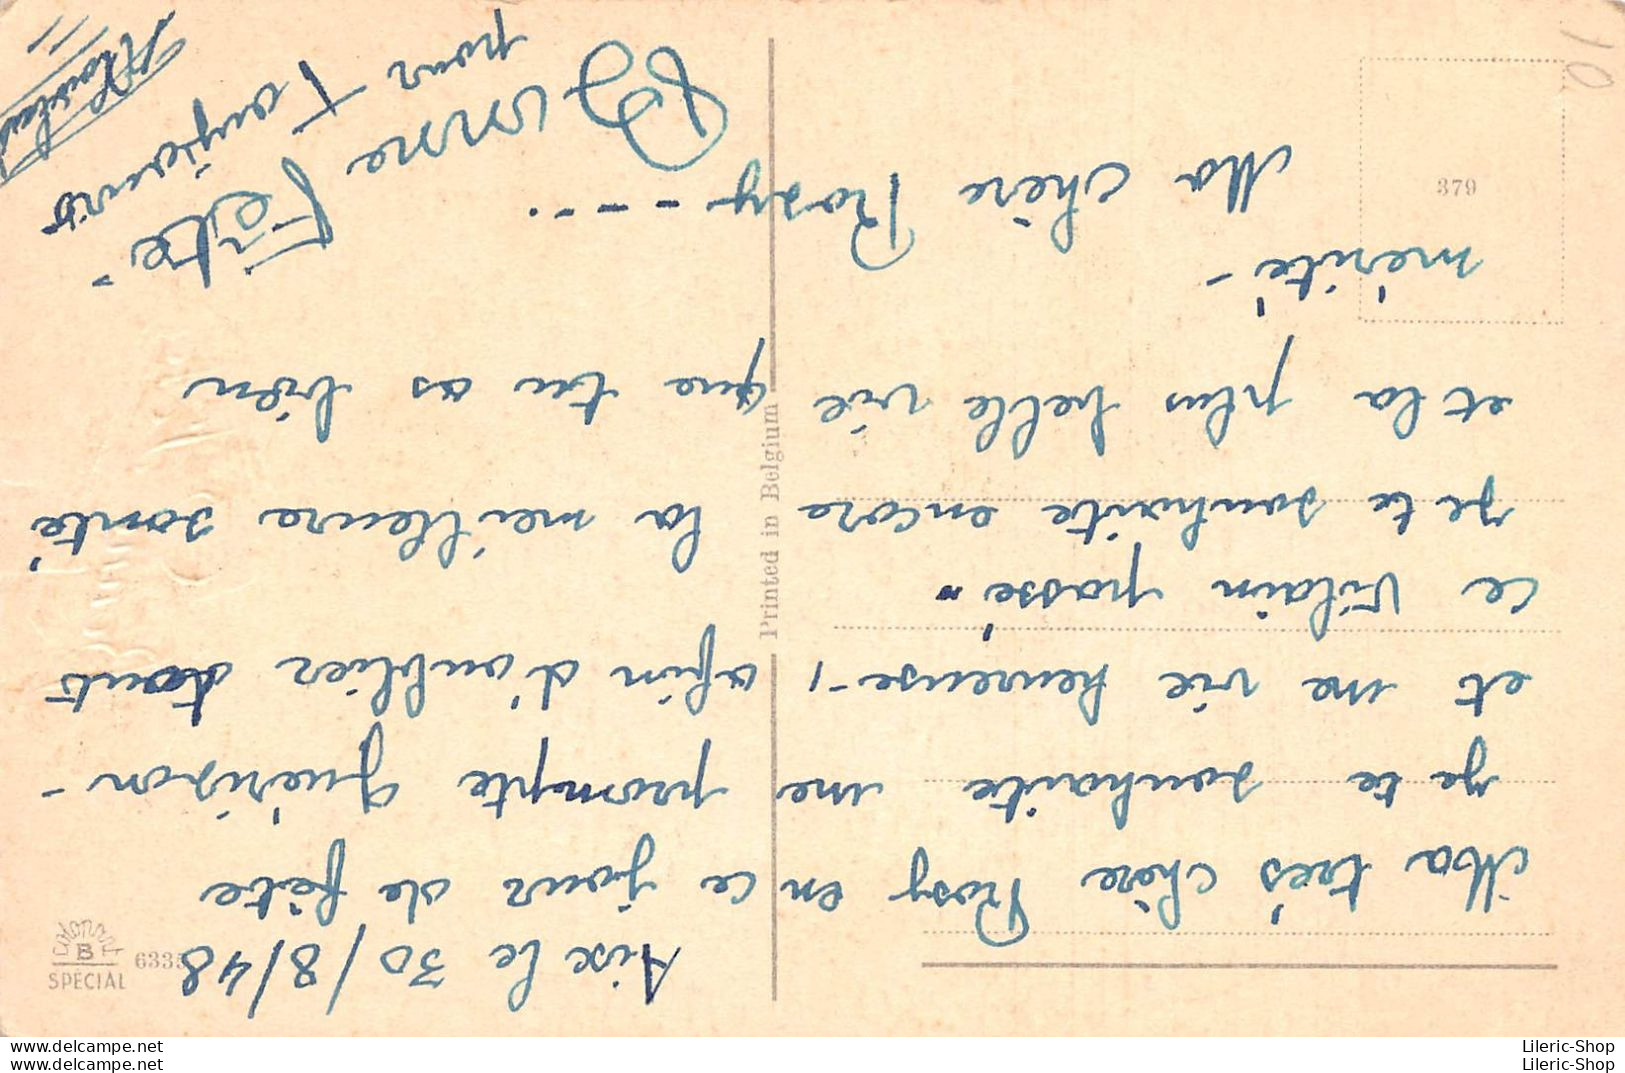 Aix le 30/8/48
Ma très chère Rosy en ce jour de fête
je te souhaite une prompte guérison -
et une vie heureuse -, afin d'oublier tout
ce vilain passé "
je te souhaite encore la meilleure santé
et la plus belle vie que tu as bien
mérité -
Ma chère Rosy - - - . .
Bonne Fête "
pour Toujours
379
Printed in Belgium
colorart
B
SPECIAL
6335
www.delcampe.net
www.delcampe.net
Lileric-Shop
Lileric-Shop
10